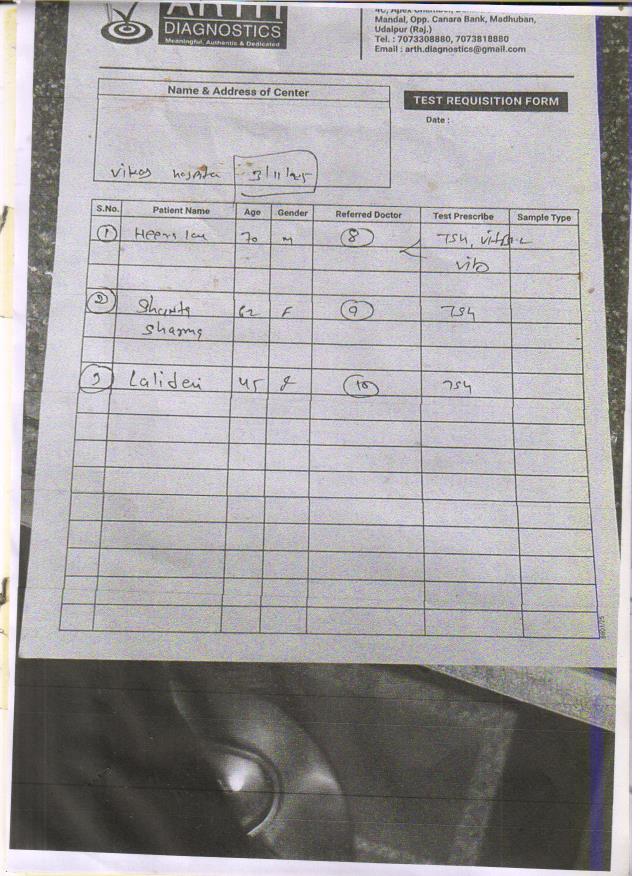 ARTH
DIAGNOSTICS
Meaningful, Authentic & Dedicated
Mandal, Opp. Canara Bank, Madhuban,
Udaipur (Raj.)
Tel. : 7073308880, 7073818880
Email : arth.diagnostics@gmail.com
Name & Address of Center
TEST REQUISITION FORM
Date :
3/11/25
S.No. Patient Name Age Gender Referred Doctor Test Prescribe Sample Type
1 70 m 8 TSH,
2 62 F 9 TSH
Sharma
3 45 10 TSH